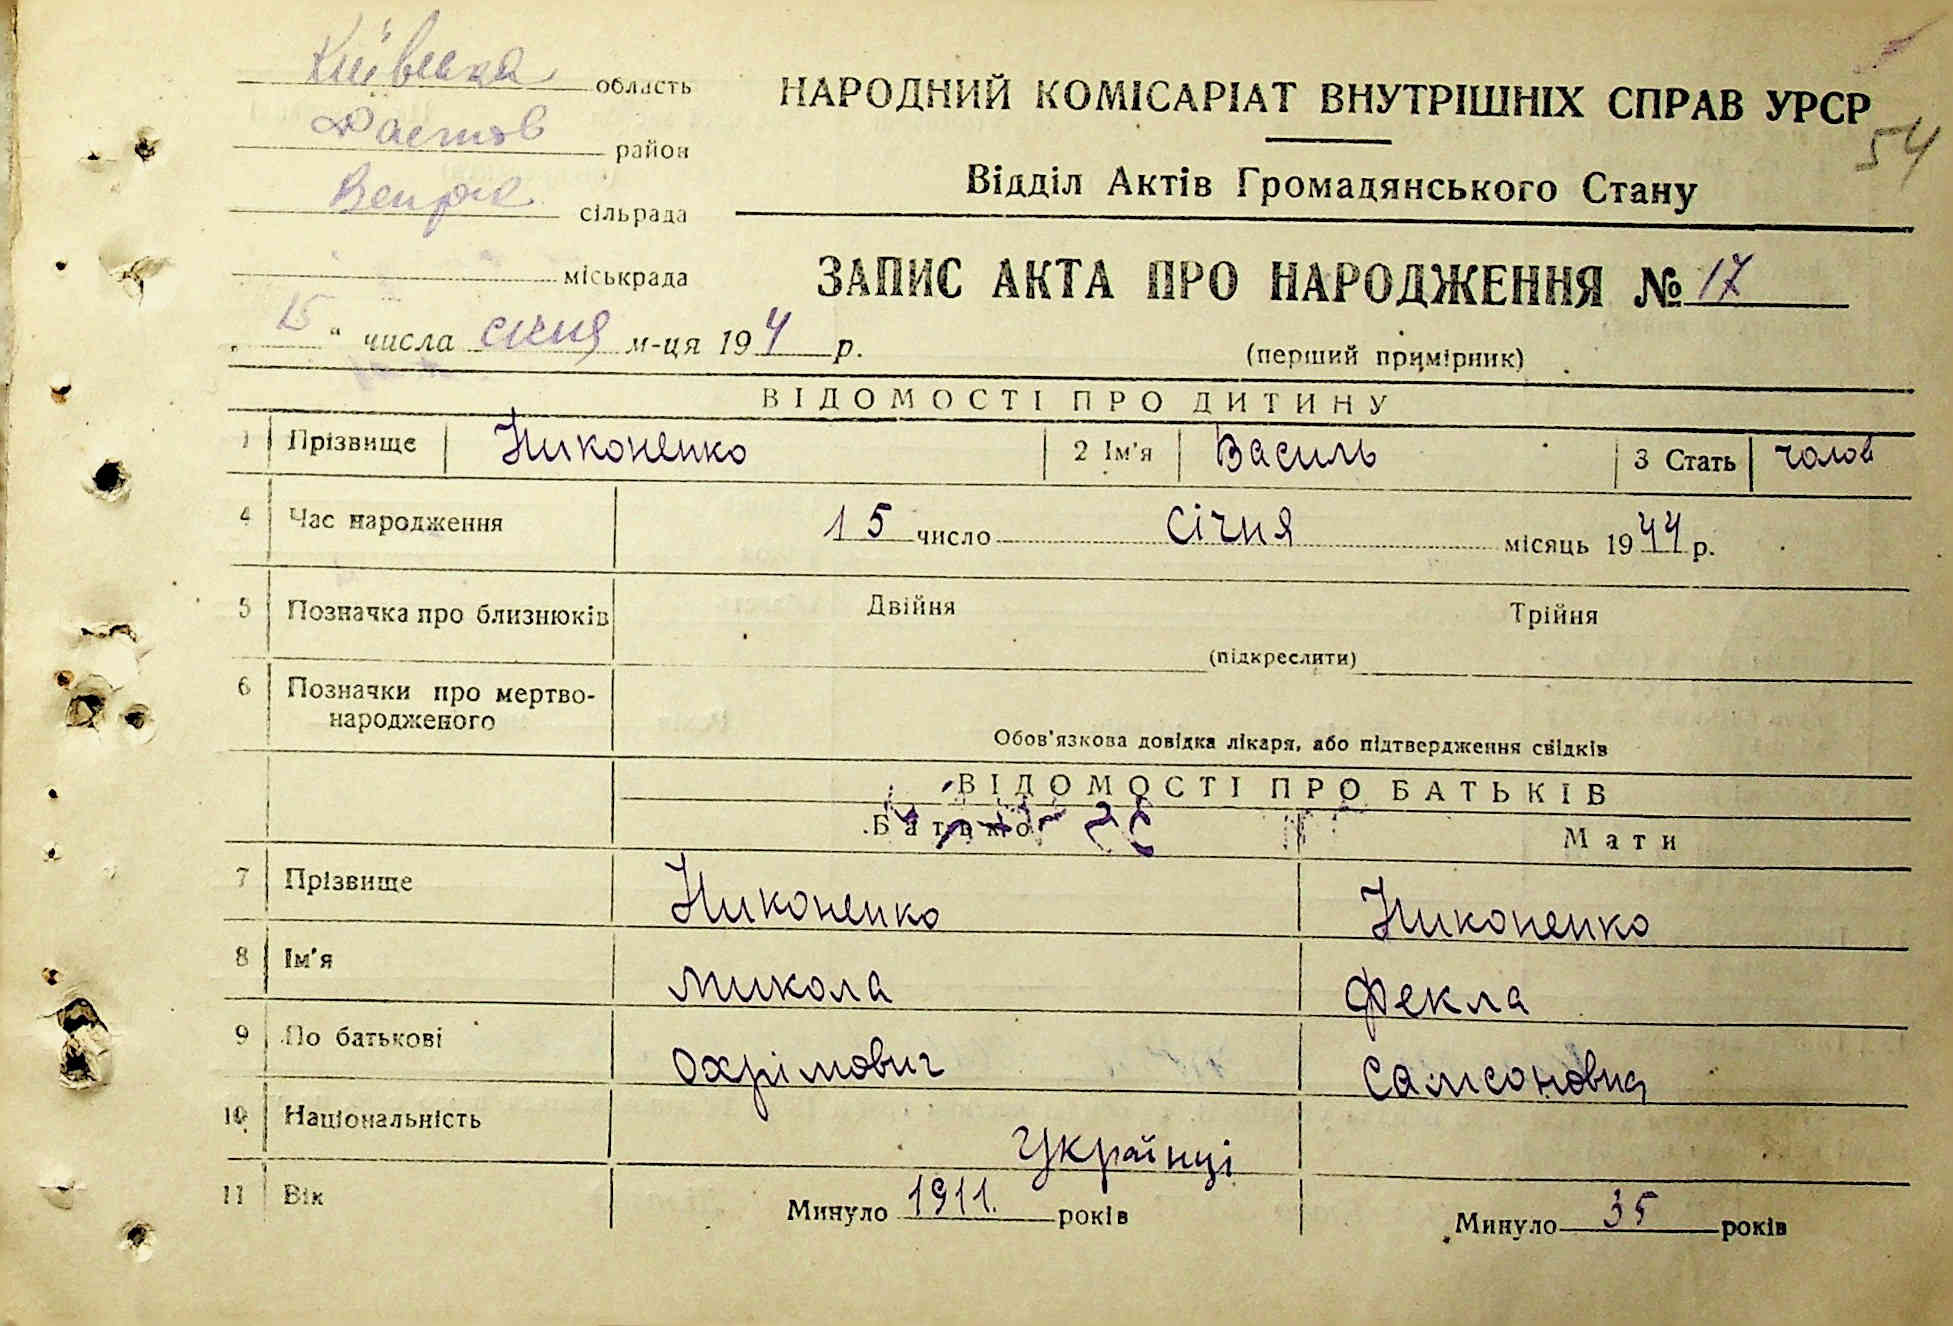 Київська область
Фастов район
Веприк сільрада
міськрада
НАРОДНИЙ КОМІСАРІАТ ВНУТРІШНІХ СПРАВ УРСР
54
Відділ Актів Громадянського Стану
ЗАПИС АКТА ПРО НАРОДЖЕННЯ № 17
(перший примірник)
„15“ числа січня м-ця 194 р.
ВІДОМОСТІ ПРО ДИТИНУ
1 Прізвище Никоненко 2 Ім'я Василь 3 Стать чолов
4 Час народження 15 число січня місяць 1944 р.
5 Позначка про близнюків Двійня Трійня
(підкреслити)
6 Позначки про мертво-
народженого
Обов'язкова довідка лікаря, або підтвердження свідків
ВІДОМОСТІ ПРО БАТЬКІВ
Батько Мати
7 Прізвище Никоненко Никоненко
8 Ім'я Микола Фекла
9 По батькові Охрімович Самсоновна
10 Національність Українці
11 Вік Минуло 1911. років Минуло 35 років